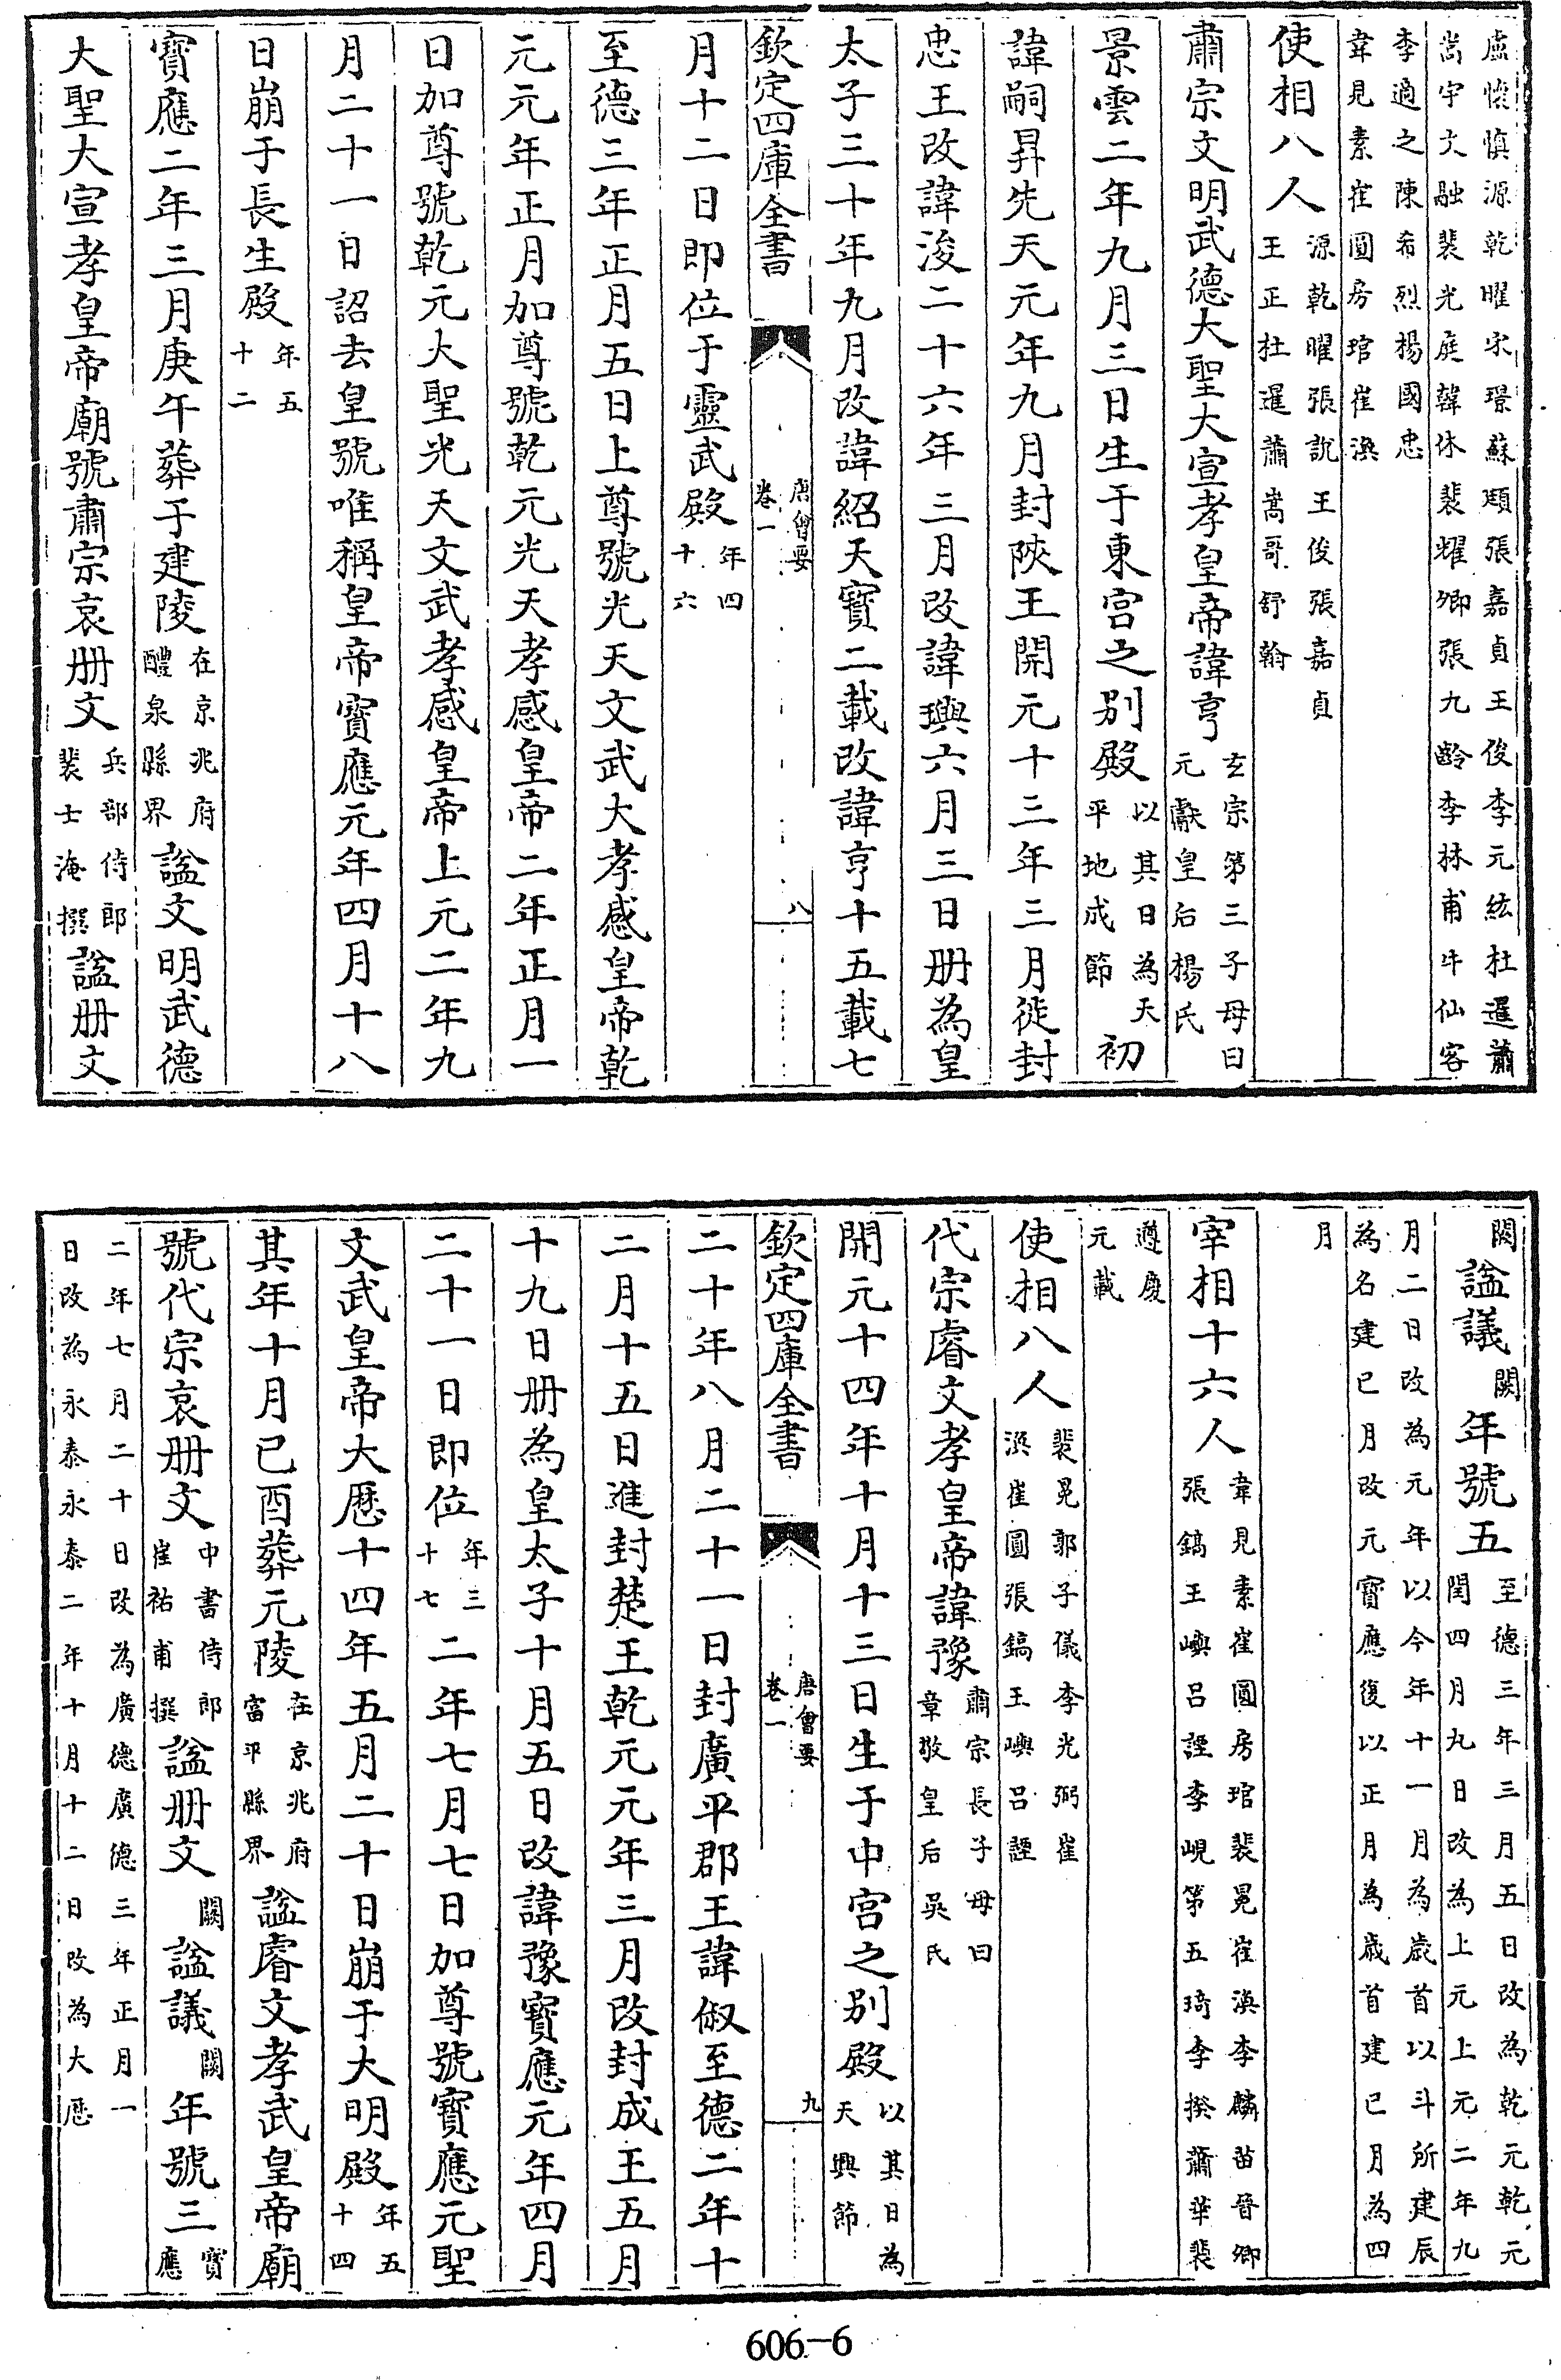 盧懷慎源乾曜宋璟蘇頲張嘉貞王俊李元紘杜暹蕭
嵩宇文融裴光庭韓休裴耀卿張九齡李林甫牛仙客
李適之陳希烈楊國忠
韋見素崔圓房琯崔渙
使相八人源乾曜張說王俊張嘉貞
王正杜暹蕭嵩哥舒翰
肅宗文明武德大聖大宣孝皇帝諱亨玄宗第三子母曰
元獻皇后楊氏
景雲二年九月三日生于東宮之別殿以其日為天
平地成節初
諱嗣昇先天元年九月封陝王開元十三年三月徙封
忠王改諱浚二十六年三月改諱璵六月三日册為皇
太子三十年九月改諱紹天寶二載改諱亨十五載七
欽定四庫全書
唐會要
卷一
八
月十二日即位于靈武殿年四
十六
至德三年正月五日上尊號光天文武大孝感皇帝乾
元元年正月加尊號乾元光天孝感皇帝二年正月一
日加尊號乾元大聖光天文武孝感皇帝上元二年九
月二十一日詔去皇號唯稱皇帝寶應元年四月十八
日崩于長生殿年五
十二
寶應二年三月庚午葬于建陵在京兆府
醴泉縣界諡文明武德
大聖大宣孝皇帝廟號肅宗哀册文兵部侍郎
裴士淹撰諡册文
闕諡議闕年號五至德三年三月五日改為乾元乾元
閏四月九日改為上元上元二年九
月二日改為元年以今年十一月為歲首以斗所建辰
為名建巳月改元寶應復以正月為歲首建巳月為四
月
宰相十六人韋見素崔圓房琯裴冕崔渙李麟苗晉卿
張鎬王嶼呂諲李峴第五琦李揆蕭華裴
遵慶
元載
使相八人裴冕郭子儀李光弼崔
渙崔圓張鎬王嶼呂諲
代宗睿文孝皇帝諱豫肅宗長子母曰
章敬皇后吳氏
開元十四年十月十三日生于中宮之別殿以其日為
天興節
欽定四庫全書
唐會要
卷一
九
二十年八月二十一日封廣平郡王諱俶至德二年十
二月十五日進封楚王乾元元年三月改封成王五月
十九日册為皇太子十月五日改諱豫寶應元年四月
二十一日即位年三
十七二年七月七日加尊號寶應元聖
文武皇帝大厯十四年五月二十日崩于大明殿年五
十四
其年十月己酉葬元陵在京兆府
富平縣界諡睿文孝武皇帝廟
號代宗哀册文中書侍郎
崔祐甫撰諡册文闕諡議闕年號三寶
應
二年七月二十日改為廣德廣德三年正月一
日改為永泰永泰二年十月十二日改為大厯
606-6